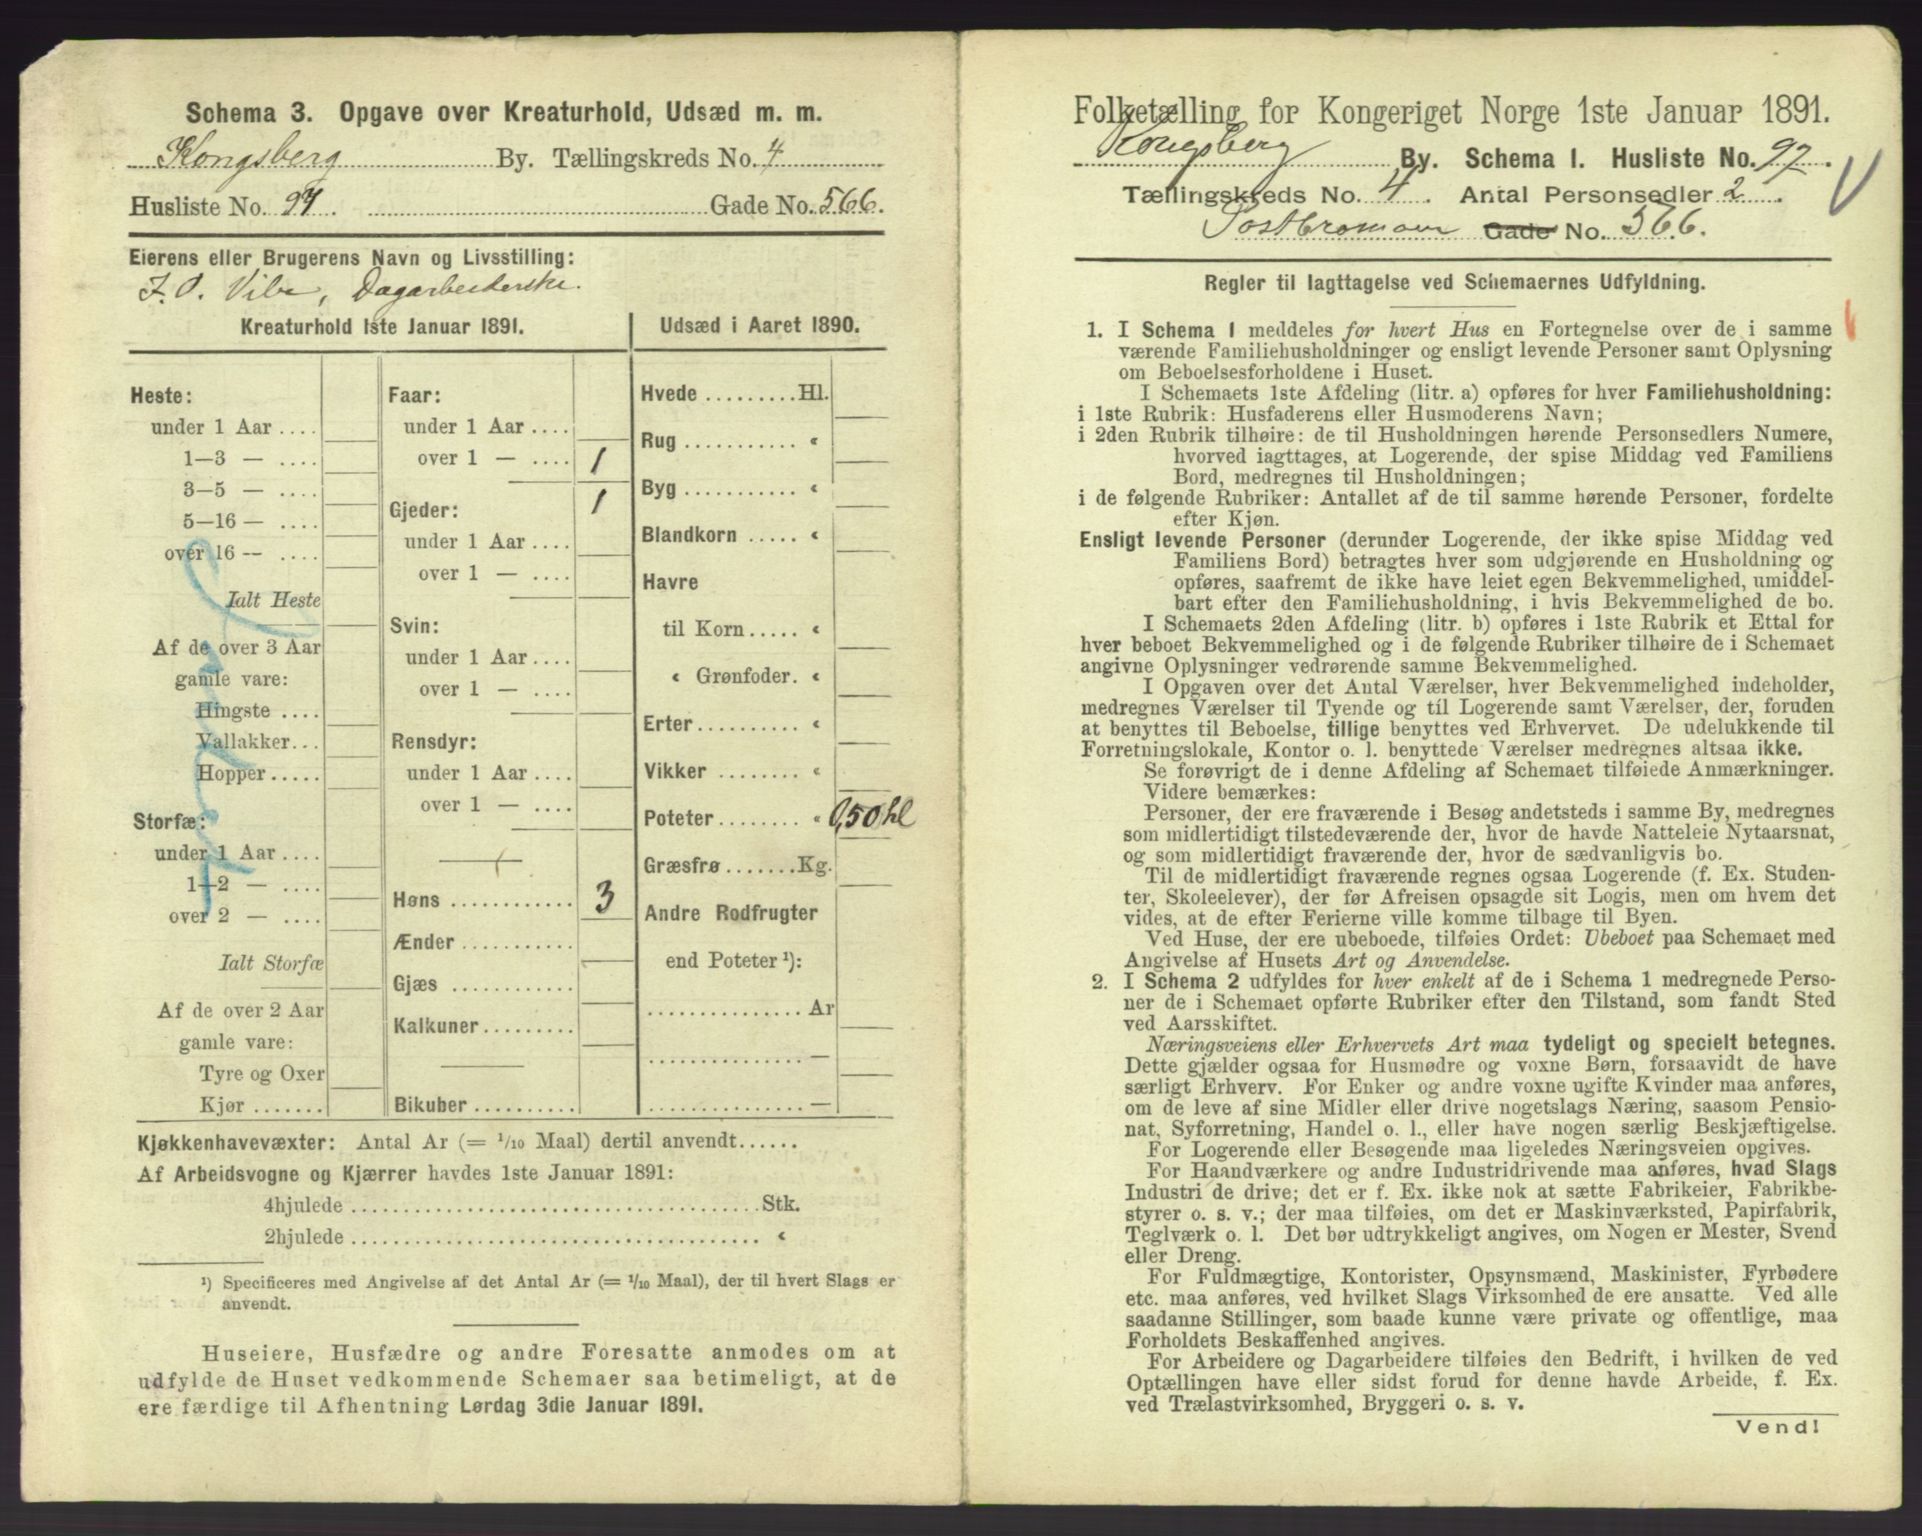 Schema 3. Opgave over Kreaturhold, Udsæd m. m.
Kongsberg By. Tællingskreds No. 4
Husliste No. 97. Gade No. 566.
Eierens eller Brugerens Navn og Livsstilling:
J. O. Vibe, Dagarbeiderske.
Kreaturhold 1ste Januar 1891.
Heste:
under 1 Aar ....
1—3 — ....
3—5 — ....
5—16 — ....
over 16 — ....
Ialt Heste
Af de over 3 Aar
gamle vare:
Hingste ....
Vallakker...
Hopper.....
Storfæ:
under 1 Aar ....
1—2 — ....
over 2 — ....
Ialt Storfæ
Af de over 2 Aar
gamle vare:
Tyre og Oxer
Kjør .......
Faar:
under 1 Aar ....
over 1 — .... 1
Gjeder: 1
under 1 Aar ....
over 1 — ....
Svin:
under 1 Aar ....
over 1 — ....
Rensdyr:
under 1 Aar ....
over 1 — ....
Høns ............ 3
Ænder ...........
Gjæs ............
Kalkuner.........
Bikuber..........
Udsæd i Aaret 1890.
Hvede .........Hl.
Rug ........... «
Byg ........... «
Blandkorn ..... «
Havre
til Korn..... «
« Grønfoder. «
Erter.......... «
Vikker ........ «
Poteter........ « 0,50 hl
Græsfrø.......Kg.
Andre Rodfrugter
end Poteter ¹):
............... Ar
............... —
............... —
Kjøkkenhavevæxter: Antal Ar (= 1/10 Maal) dertil anvendt......
Af Arbeidsvogne og Kjærrer havdes 1ste Januar 1891:
4hjulede ......................................Stk.
2hjulede ...................................... «
¹) Specificeres med Angivelse af det Antal Ar (= 1/10 Maal), der til hvert Slags er
anvendt.
Huseiere, Husfædre og andre Foresatte anmodes om at
udfylde de Huset vedkommende Schemaer saa betimeligt, at de
ere færdige til Afhentning Lørdag 3die Januar 1891.
Folketælling for Kongeriget Norge 1ste Januar 1891.
Kongsberg By. Schema I. Husliste No. 97.
Tællingskreds No. 4. Antal Personsedler 2.
Gade No. 566.
Regler til Iagttagelse ved Schemaernes Udfyldning.
1. I Schema 1 meddeles for hvert Hus en Fortegnelse over de i samme
værende Familiehusholdninger og ensligt levende Personer samt Oplysning
om Beboelsesforholdene i Huset.
I Schemaets 1ste Afdeling (litr. a) opføres for hver Familiehusholdning:
i 1ste Rubrik: Husfaderens eller Husmoderens Navn;
i 2den Rubrik tilhøire: de til Husholdningen hørende Personsedlers Numere,
hvorved iagttages, at Logerende, der spise Middag ved Familiens
Bord, medregnes til Husholdningen;
i de følgende Rubriker: Antallet af de til samme hørende Personer, fordelte
efter Kjøn.
Ensligt levende Personer (derunder Logerende, der ikke spise Middag ved
Familiens Bord) betragtes hver som udgjørende en Husholdning og
opføres, saafremt de ikke have leiet egen Bekvemmelighed, umiddel-
bart efter den Familiehusholdning, i hvis Bekvemmelighed de bo.
I Schemaets 2den Afdeling (litr. b) opføres i 1ste Rubrik et Ettal for
hver beboet Bekvemmelighed og i de følgende Rubriker tilhøire de i Schemaet
angivne Oplysninger vedrørende samme Bekvemmelighed.
I Opgaven over det Antal Værelser, hver Bekvemmelighed indeholder,
medregnes Værelser til Tyende og til Logerende samt Værelser, der, foruden
at benyttes til Beboelse, tillige benyttes ved Erhvervet. De udelukkende til
Forretningslokale, Kontor o. l. benyttede Værelser medregnes altsaa ikke.
Se forøvrigt de i denne Afdeling af Schemaet tilføiede Anmærkninger.
Videre bemærkes:
Personer, der ere fraværende i Besøg andetsteds i samme By, medregnes
som midlertidigt tilstedeværende der, hvor de havde Natteleie Nytaarsnat,
og som midlertidigt fraværende der, hvor de sædvanligvis bo.
Til de midlertidigt fraværende regnes ogsaa Logerende (f. Ex. Studen-
ter, Skoleelever), der før Afreisen opsagde sit Logis, men om hvem det
vides, at de efter Ferierne ville komme tilbage til Byen.
Ved Huse, der ere ubeboede, tilføies Ordet: Ubeboet paa Schemaet med
Angivelse af Husets Art og Anvendelse.
2. I Schema 2 udfyldes for hver enkelt af de i Schema 1 medregnede Perso-
ner de i Schemaet opførte Rubriker efter den Tilstand, som fandt Sted
ved Aarsskiftet.
Næringsveiens eller Erhvervets Art maa tydeligt og specielt betegnes.
Dette gjælder ogsaa for Husmødre og voxne Børn, forsaavidt de have
særligt Erhverv. For Enker og andre voxne ugifte Kvinder maa anføres,
om de leve af sine Midler eller drive nogetslags Næring, saasom Pensio-
nat, Syforretning, Handel o. l., eller have nogen særlig Beskjæftigelse.
For Logerende eller Besøgende maa ligeledes Næringsveien opgives.
For Haandværkere og andre Industridrivende maa anføres, hvad Slags
Industri de drive; det er f. Ex. ikke nok at sætte Fabrikeier, Fabrikbe-
styrer o. s. v.; der maa tilføies, om det er Maskinværksted, Papirfabrik,
Teglværk o. l. Det bør udtrykkeligt angives, om Nogen er Mester, Svend
eller Dreng.
For Fuldmægtige, Kontorister, Opsynsmænd, Maskinister, Fyrbødere
etc. maa anføres, ved hvilket Slags Virksomhed de ere ansatte. Ved alle
saadanne Stillinger, som baade kunne være private og offentlige, maa
Forholdets Beskaffenhed angives.
For Arbeidere og Dagarbeidere tilføies den Bedrift, i hvilken de ved
Optællingen have eller sidst forud for denne havde Arbeide, f. Ex.
ved Trælastvirksomhed, Bryggeri o. s. v.
Vend!